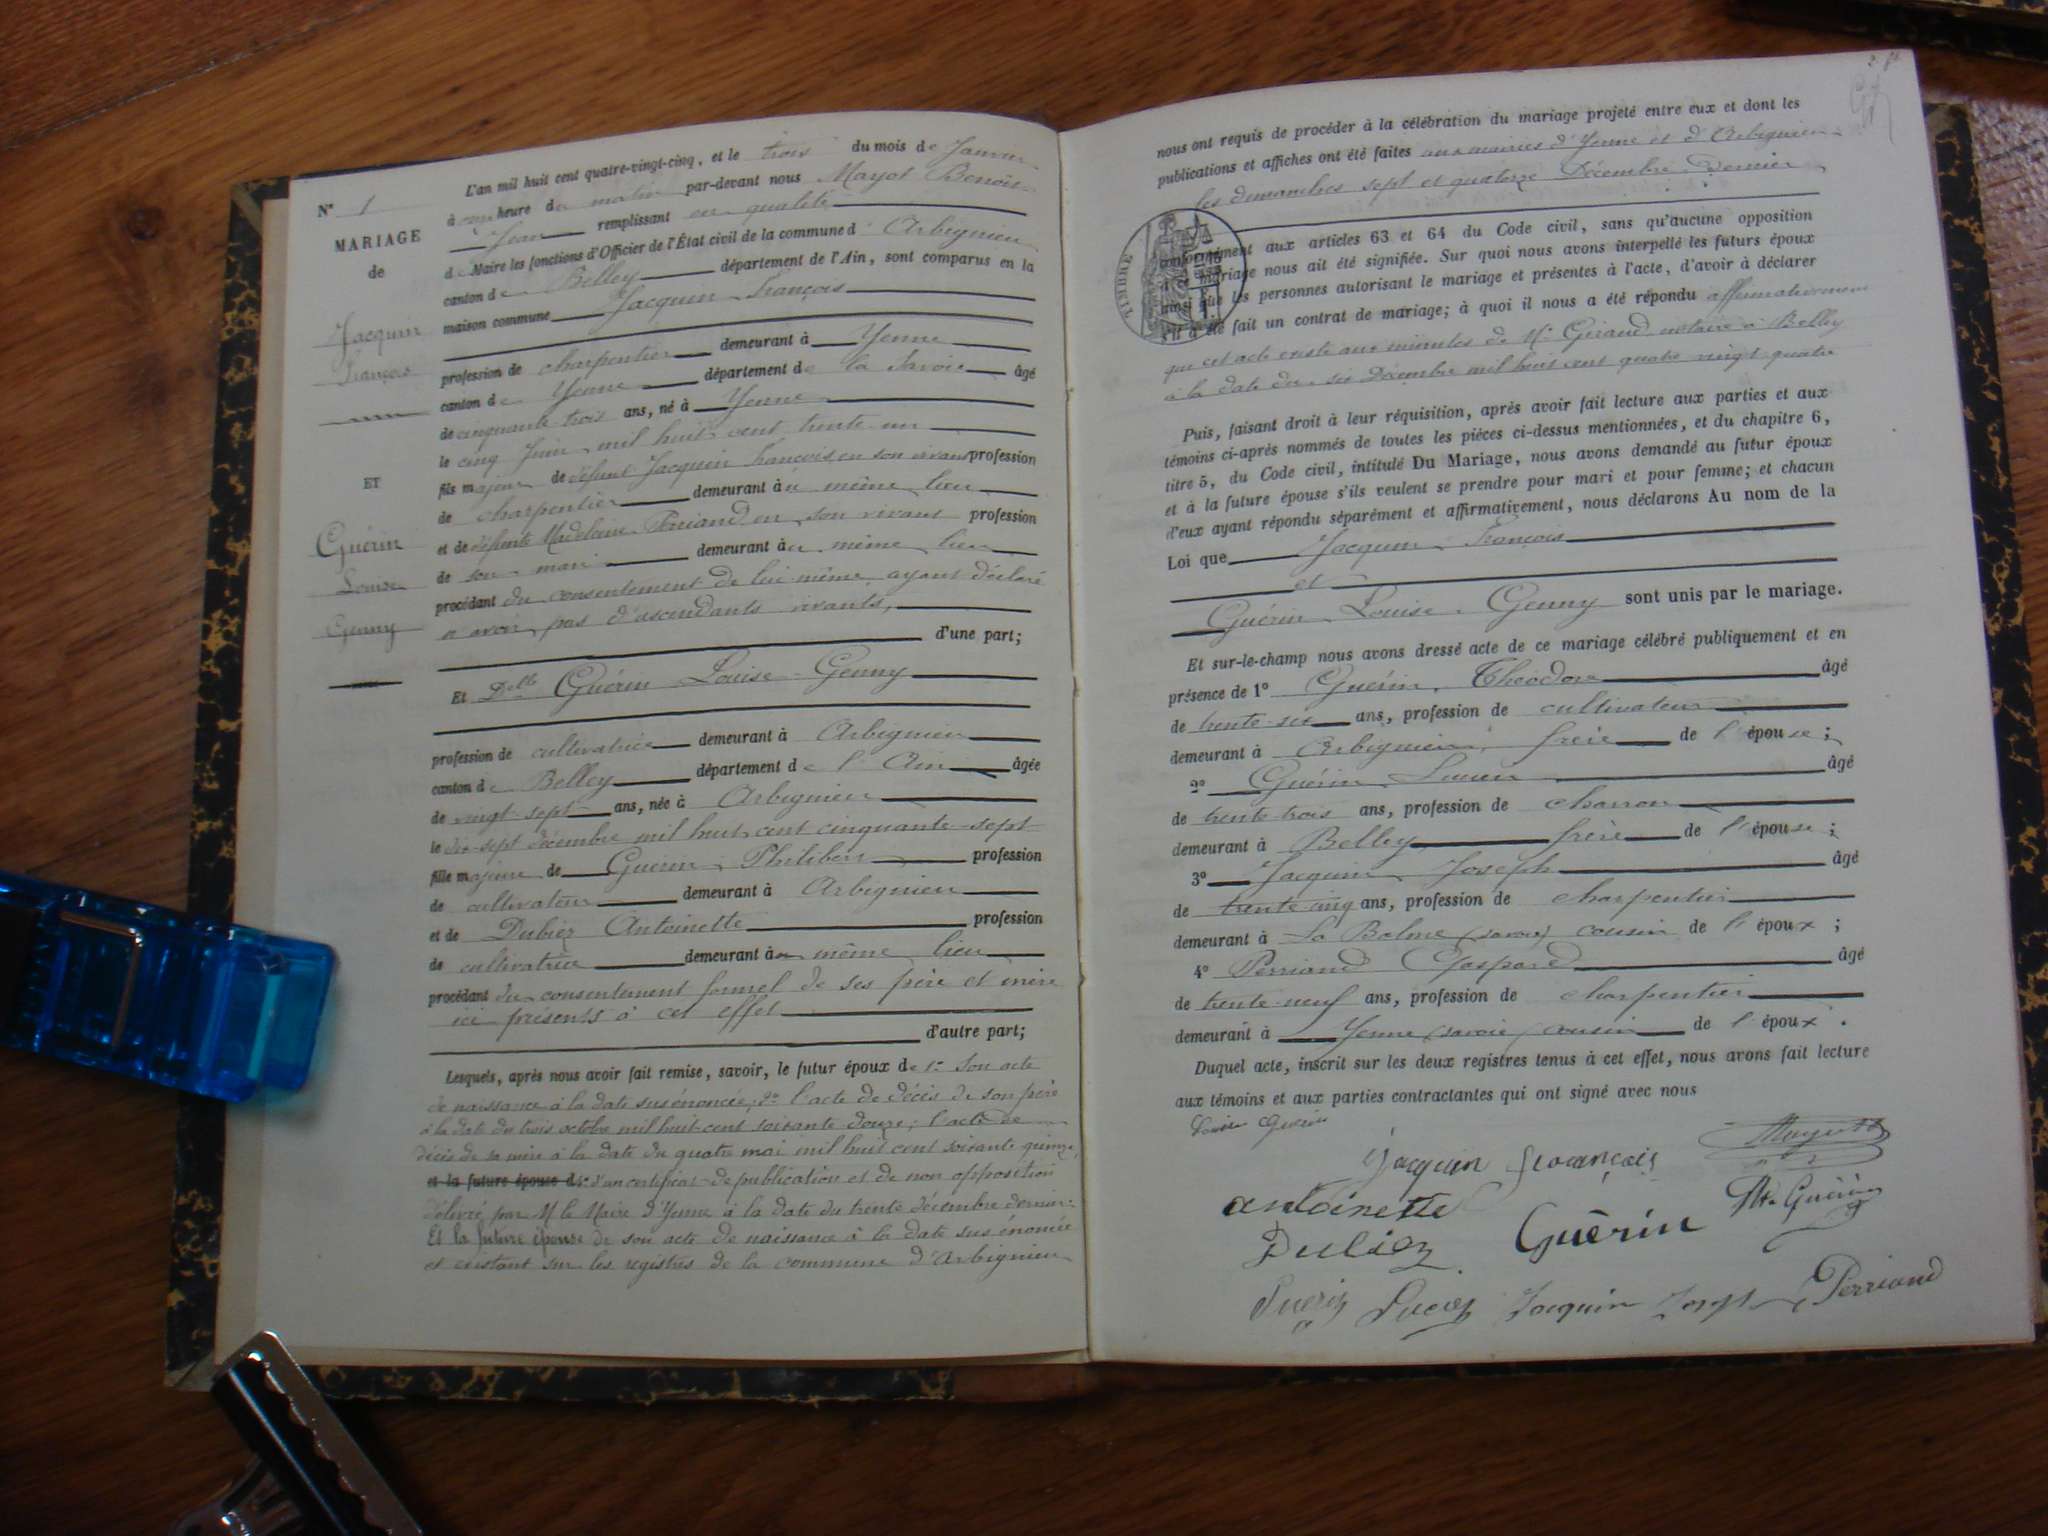 L'an mil huit cent quatre-vingt-cinq, et le trois du mois de Janvier
N° 1
à heure du matin par-devant nous Mayot Benoit
MARIAGE
Jean remplissant en qualité
de
de Maire les fonctions d'Officier de l'État civil de la commune d' Arbignieu
canton de Belley département de l'Ain, sont comparus en la
maison commune Jacquin François
Jacquin
François
profession de charpentier demeurant à Yenne
canton de Yenne département de la Savoie âgé
de cinquante trois ans, né à Yenne
le cinq Juin mil huit cent trente un
fils majeur de défunt Jacquin François en son vivant profession
ET
de charpentier demeurant au même lieu
et de défunte Madeleine Perriand en son vivant profession
Guérin
Louise
Genny
de son mari demeurant au même lieu
procédant du consentement de lui même, ayant déclaré
n'avoir pas d'ascendants vivants,
d'une part;
Et Delle Guérin Louise Genny
profession de cultivatrice demeurant à Arbignieu
canton de Belley département de l'Ain âgée
de vingt-sept ans, née à Arbignieu
le dix-sept décembre mil huit cent cinquante-sept
fille majeure de Guérin Philibert profession
de cultivateur demeurant à Arbignieu
et de Dubiez Antoinette profession
de cultivatrice demeurant au même lieu
procédant du consentement formel de ses père et mère
ici présents à cet effet
d'autre part;
Lesquels, après nous avoir fait remise, savoir, le futur époux de 1° Son acte
de naissance à la date susénoncée; 2° l'acte de décès de son père
à la date du trois octobre mil huit cent soixante douze; l'acte de
décès de sa mère à la date du quatre mai mil huit cent soixante quinze,
et la future épouse d d'un certificat de publication et de non opposition
délivré par M le Maire d'Yenne à la date du trente décembre dernier.
Et la future épouse de son acte de naissance à la date sus énoncée
et existant sur les registres de la commune d'Arbignieu
nous ont requis de procéder à la célébration du mariage projeté entre eux et dont les
publications et affiches ont été faites aux mairies d'Yenne et d'Arbignieu
les dimanches sept et quatorze Décembre dernier
TIMBRE
conformément aux articles 63 et 64 du Code civil, sans qu'aucune opposition
à ce mariage nous ait été signifiée. Sur quoi nous avons interpellé les futurs époux
ainsi que les personnes autorisant le mariage et présentes à l'acte, d'avoir à déclarer
s'il a été fait un contrat de mariage; à quoi il nous a été répondu affirmativement
que cet acte existe aux minutes de Me Géraud notaire à Belley
à la date du six Décembre mil huit cent quatre vingt quatre
Puis, faisant droit à leur réquisition, après avoir fait lecture aux parties et aux
témoins ci-après nommés de toutes les pièces ci-dessus mentionnées, et du chapitre 6,
titre 5, du Code civil, intitulé Du Mariage, nous avons demandé au futur époux
et à la future épouse s'ils veulent se prendre pour mari et pour femme; et chacun
d'eux ayant répondu séparément et affirmativement, nous déclarons Au nom de la
Loi que Jacquin François
et
Guérin Louise Genny sont unis par le mariage.
Et sur-le-champ nous avons dressé acte de ce mariage célébré publiquement et en
présence de 1° Guérin Théodore âgé
de trente-six ans, profession de cultivateur
demeurant à Arbignieu frère de l'épouse;
2° Guérin Lucien âgé
de trente trois ans, profession de charron
demeurant à Belley frère de l'épouse;
3° Jacquin Joseph âgé
de trente-cinq ans, profession de charpentier
demeurant à La Balme (savoie) cousin de l'époux;
4° Perriand Gaspard âgé
de trente-neuf ans, profession de charpentier
demeurant à Yenne (savoie) cousin de l'époux.
Duquel acte, inscrit sur les deux registres tenus à cet effet, nous avons fait lecture
aux témoins et aux parties contractantes qui ont signé avec nous
Louise Guérin
Jacquin François
antoinette
Dubiez
Guérin
Th. Guérin
Guerin Lucien Jacquin Joseph Perriand